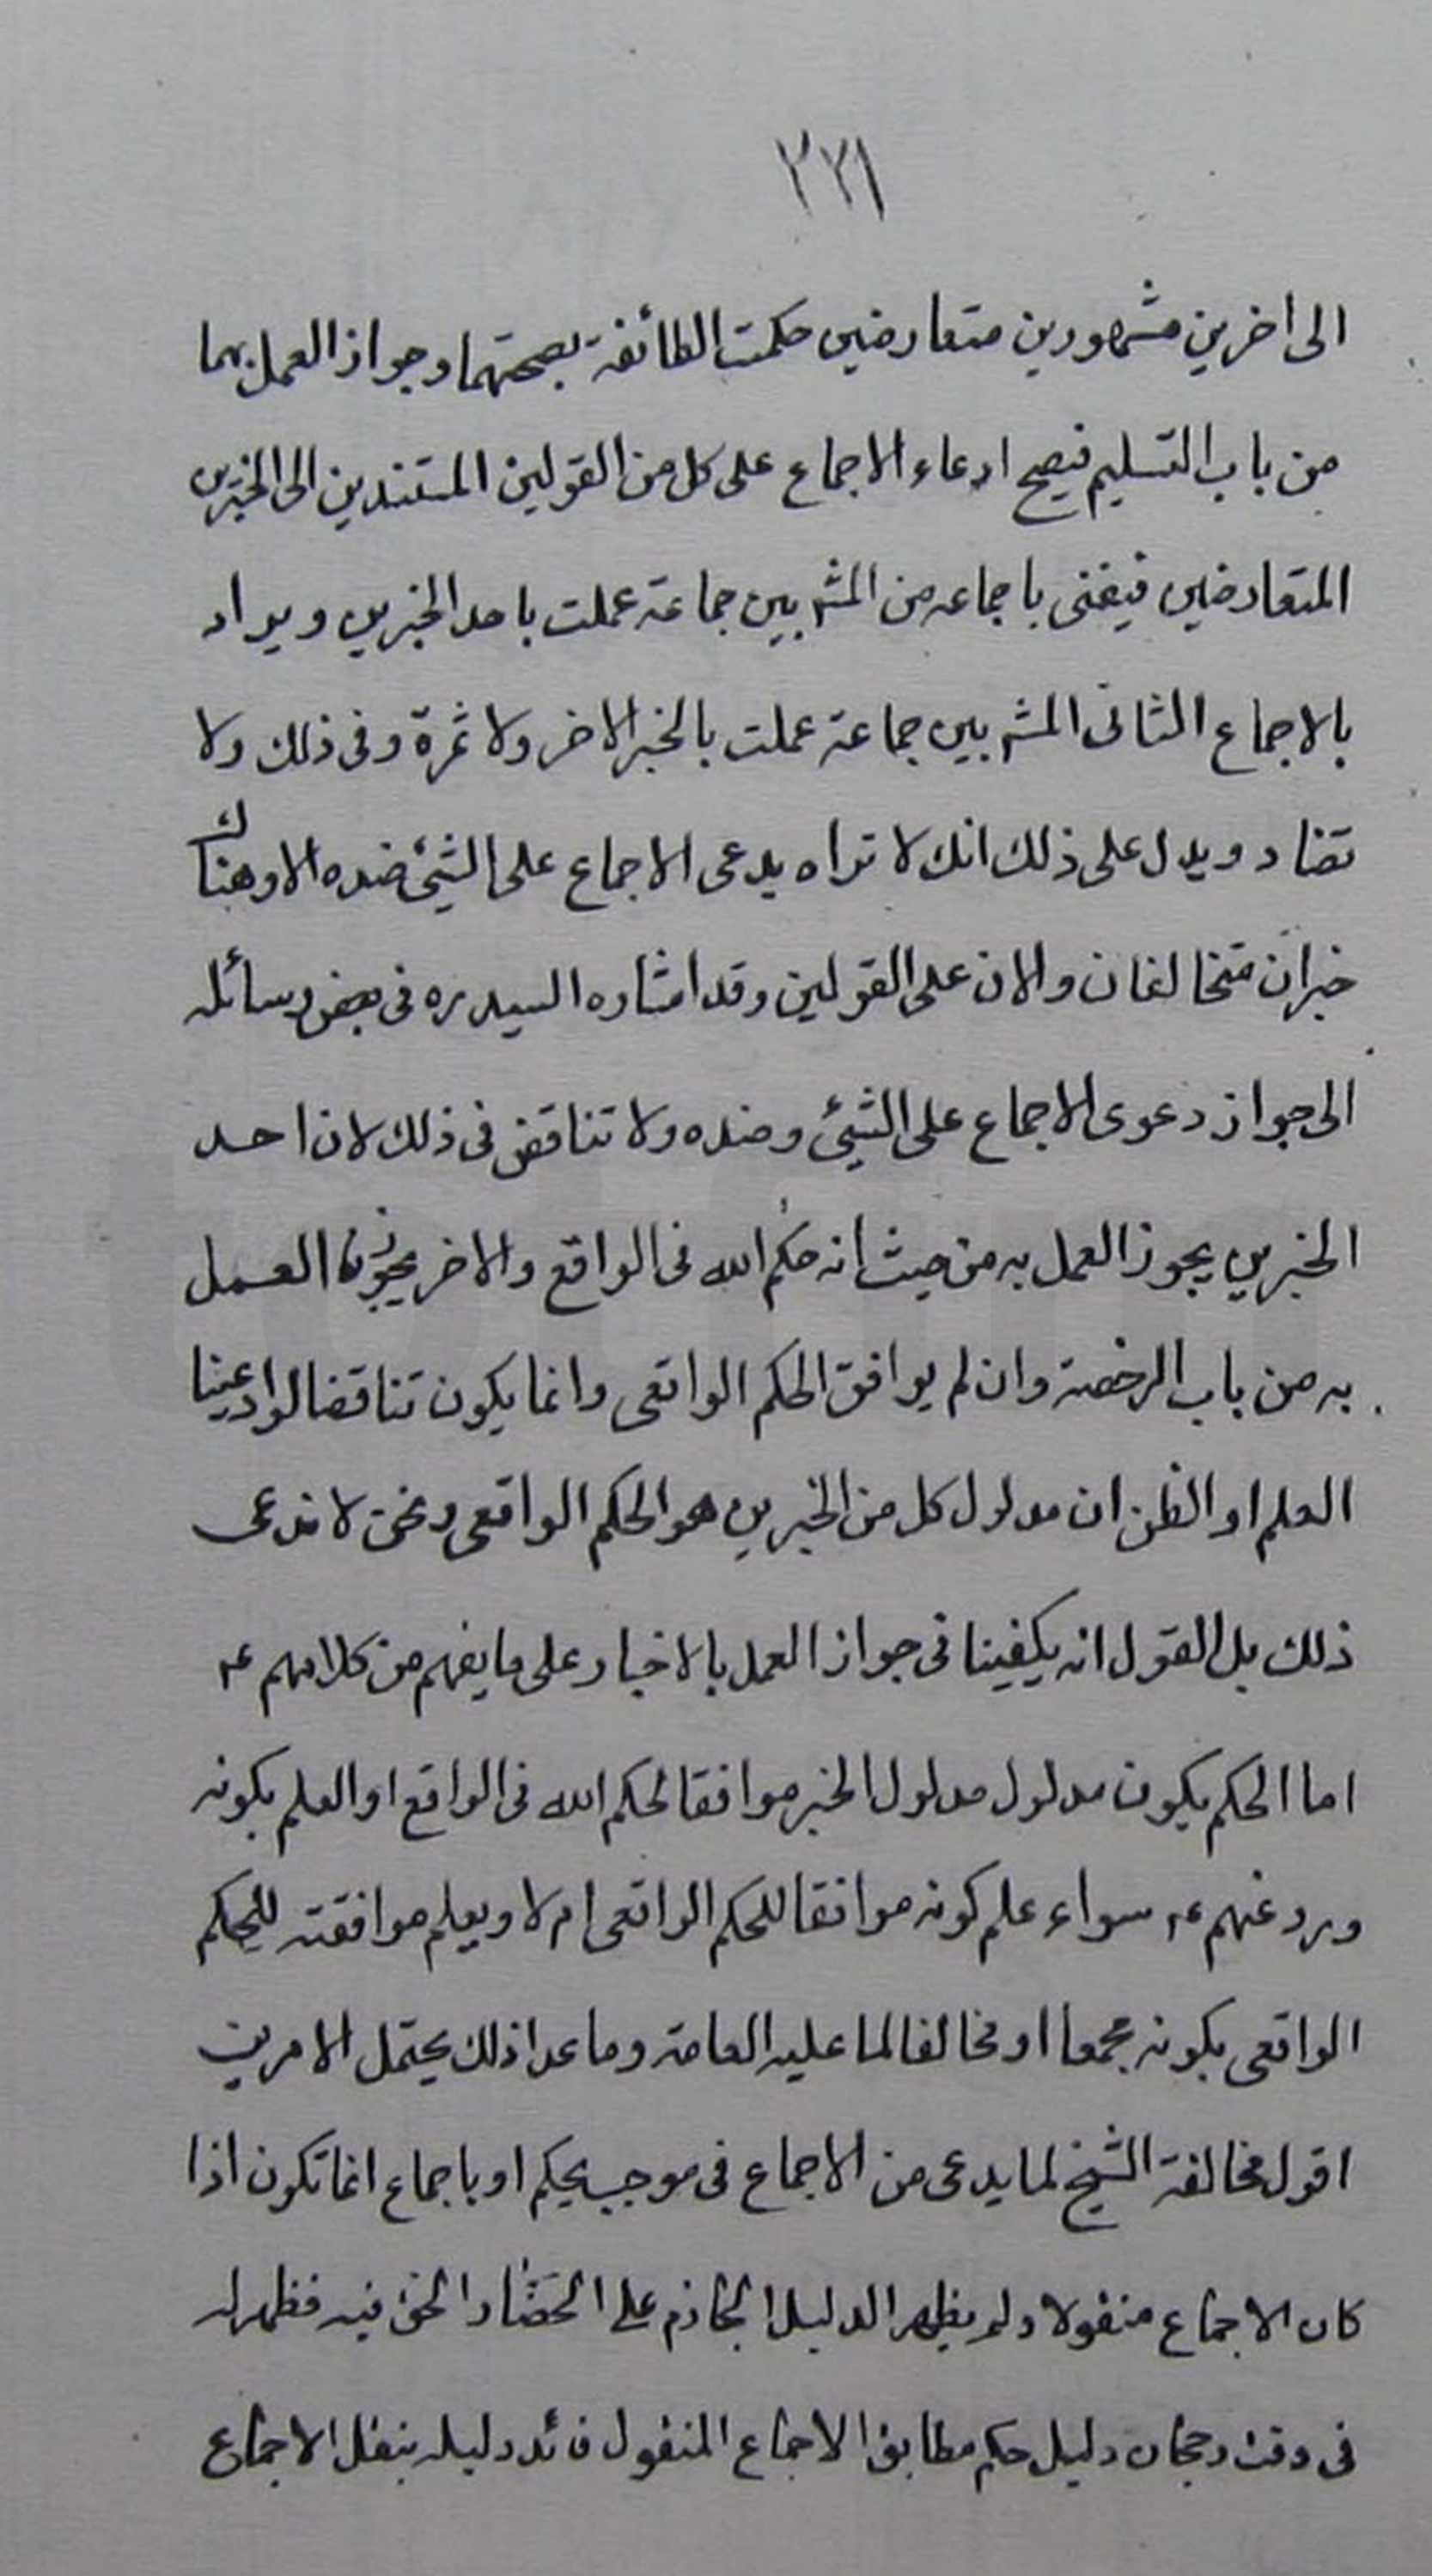 ٢٢١
الى اخرين مشهورين متعارضين حكمت الطائفة بصحتهما وجواز العمل بهما
من باب التسليم فيصح ادعاء الاجماع على كل من القولين المستندين الى الخبرين
المتعارضين فيغنى باجماعه من المشـ بين جماعة عملت باحد الخبرين ويراد
بالاجماع الثانى المشـ بين جماعة عملت بالخبر الاخر ولا ثمرة وفى ذلك ولا
تضاد ويدل على ذلك انك لا تراه يدعى الاجماع على الشئ ضده الا وهناك
خبران متخالفان والان على القولين وقد اشاره السيد ره فى بعض رسائله
الى جواز دعوى الاجماع على الشئ وضده ولا تناقض فى ذلك لان احد
الخبرين يجوز العمل به من حيث انه حكم الله فى الواقع والاخر يجوز لنا العمل
به من باب الرخصة وان لم يوافق الحكم الواقعى وانما يكون تناقضا لو ادعينا
العلم او الظن ان مدلول كل من الخبرين هو الحكم الواقعى ونحن لا ندعى
ذلك بل القول انه يكفينا فى جواز العمل بالاخبار على ما يفهم من كلامهم ع
اما الحكم بكون مدلول مدلول الخبر موافقا لحكم الله فى الواقع او العلم بكونه
ورد عنهم ع سواء علم كونه موافقا للحكم الواقعى ام لا ويعلم موافقته للحكم
الواقعى بكونه مجمعا او مخالفا لما عليه العامة وما عدا ذلك يحتمل الامرين
اقول مخالفة الشيخ لما يدعى من الاجماع فى موجب يحكم او باجماع انما تكون اذا
كان الاجماع منقولا ولم يظهر الدليل الجازم على انحصار الحق فيه فظهر له
فى وقت رجحان دليل حكم مطابق الاجماع المنقول فائد دليله بنقل الاجماع